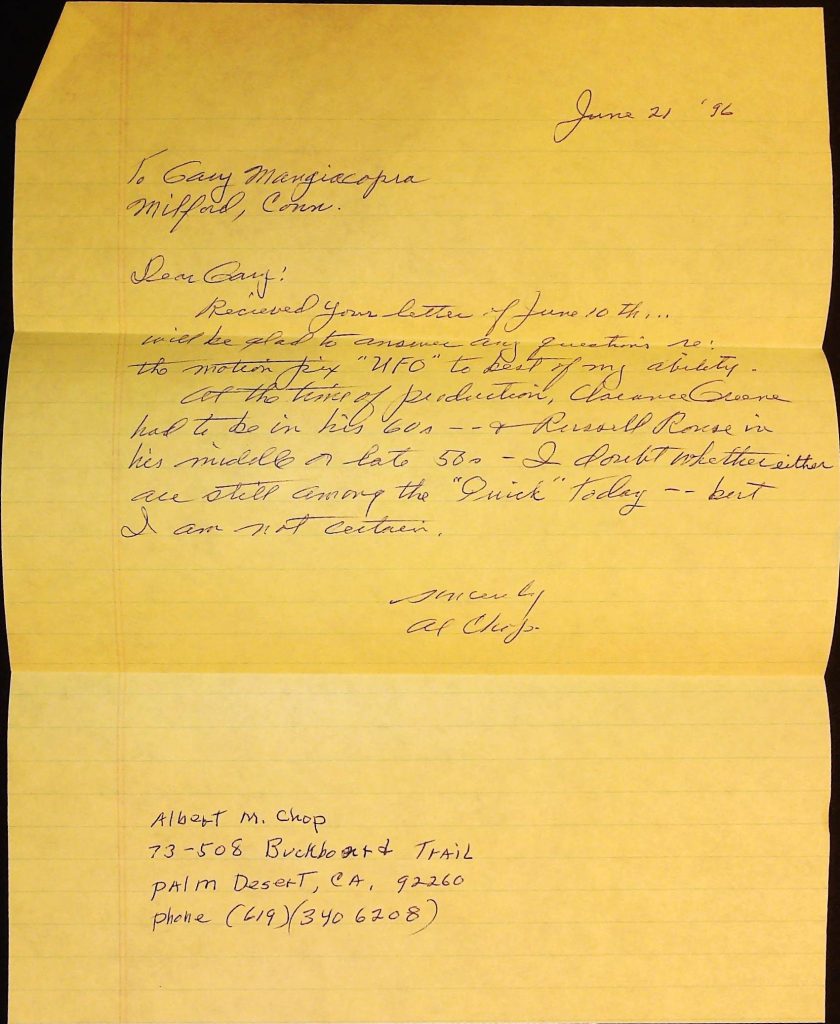 June 21 '96
To Gary Mangiacopra
Milford, Conn.
Dear Gary:
Recieved your letter of June 10th...
will be glad to answer any questions re:
the motion pix "UFO" to best of my ability.
At the time of production, Clarence Greene
had to be in his 60s -- & Russell Rouse in
his middle or late 50s - I doubt whether either
are still among the "Quick" today -- but
I am not certain.
Sincerely
Al Chop
Albert M. Chop
73-508 Buckboard Trail
Palm Desert, CA. 92260
phone (619)(340 6208)